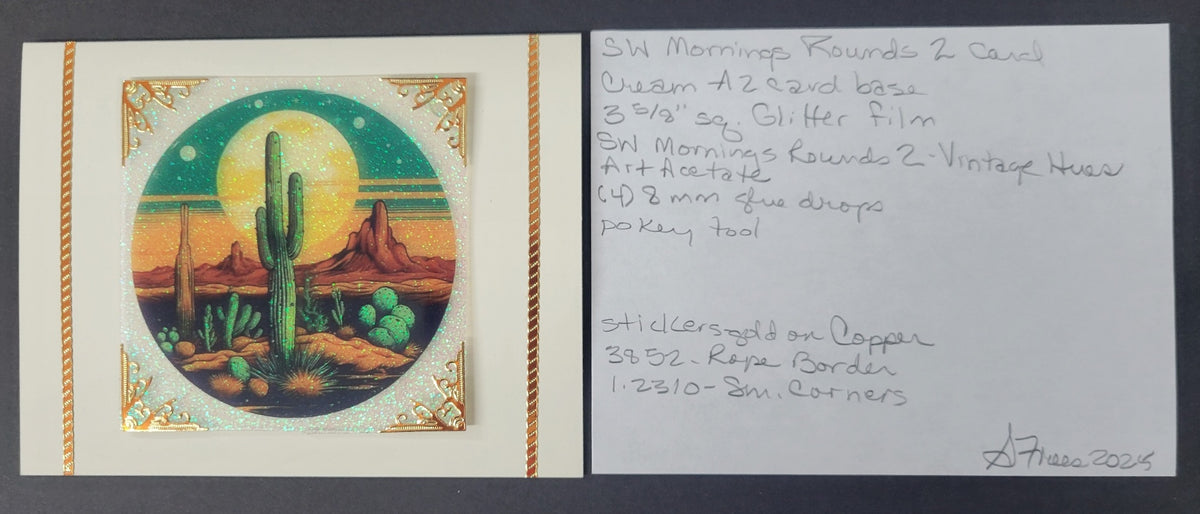 SW Mornings Rounds 2 Card
Cream A2 card base
3 5/8" sq. Glitter film
SW Mornings Rounds 2-Vintage Hues
Art Acetate
(4) 8 mm glue drops
pokey tool
stickers-gold on Copper
3852-Rope Border
1.2310-Sm. Corners